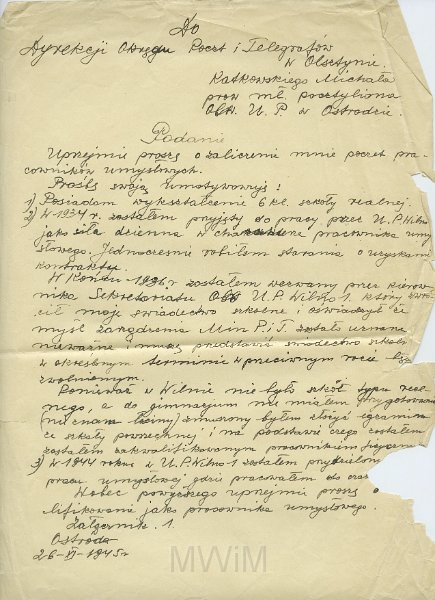 Do
Dyrekcji Okręgu Poczt i Telegrafów
w Olsztynie.
Katkowskiego Michała
prow mł. pocztyliona
Obw. U. P. w Ostródzie.
Podanie
Uprzejmie proszę o zaliczenie mnie poczet pra-
cowników umysłowych.
Prośbę swoją umotywowuję:
1) Posiadam wykształcenie 6 kl. szkoły realnej.
2) W 1934 r. zostałem przyjęty do pracy przez U. P. Wilno
jako siła dzienna w charakterze pracownika umy
słowego Jednocześnie robiłem starania o uzyskanie
kontraktu.
W końcu 1936 r zostałem wezwany przez kierow
nika Sekretariatu Obw U.P. Wilno 1. który zwró
cił moje świadectwo szkolne i oświadczył że
myśl zarządzenia Min P. i T. zostało uznane
nieważne i muszę przedstawić świadectwo szkoln
w określonym terminie w przeciwnym razie
zwolnionym.
Ponieważ w Wilnie nie było szkół typu real
nego, a do gimnazjum nie miałem przygotowania
(nie znam łaciny) zmuszony byłem złożyć egzamin
ze szkoły powszechnej i na podstawie czego zostałem
zostałem zakwalifikowanym pracownikiem fizycznym
3) W 1944 roku w U. P. Wilno 1 zostałem przydzielon
pracy umysłowej gdzie pracowałem do
Wobec powyższego uprzejmie proszę o
lifikowanie jako pracownika umysłowego.
Załącznik. 1.
Ostróda
26-VI-1945 r
MWiM